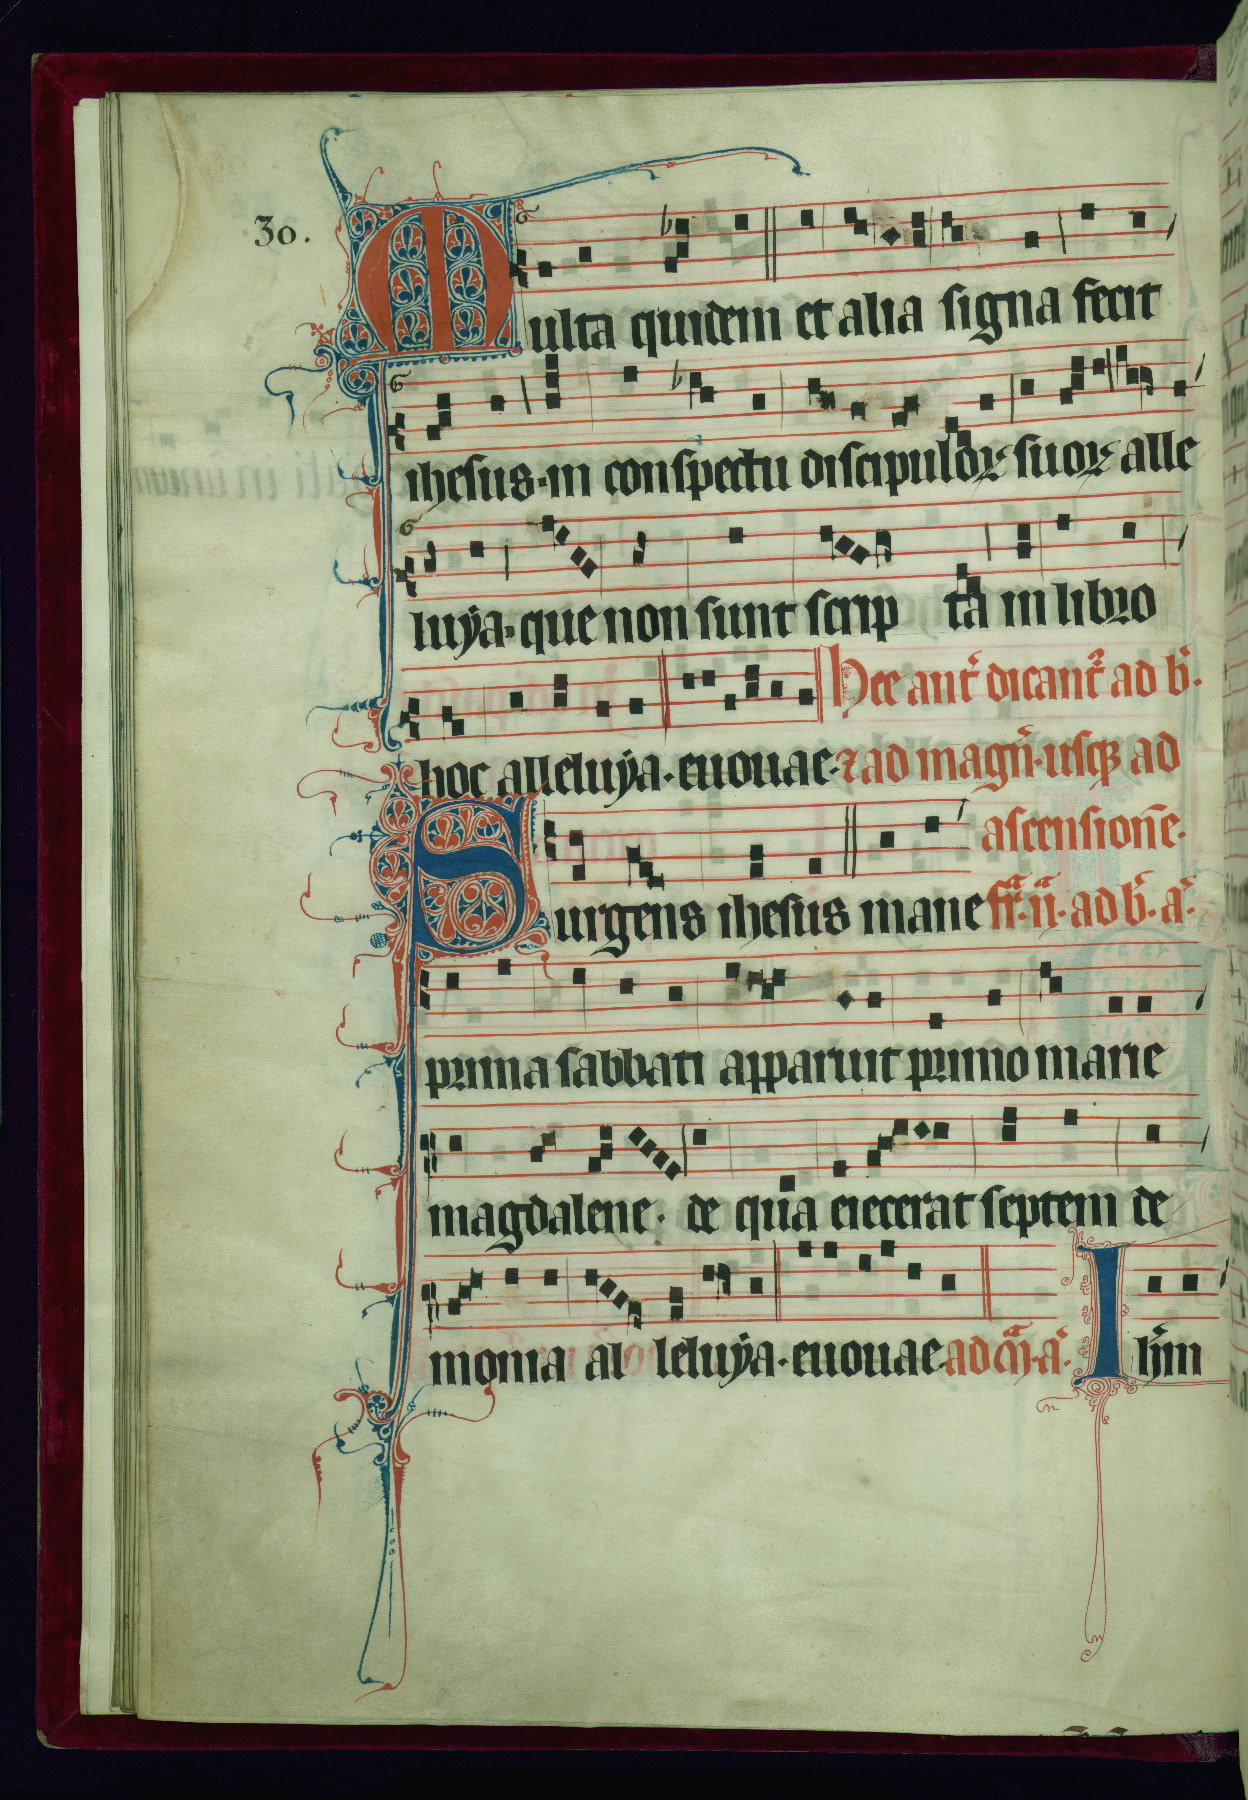 30.
Multa quidem et alia signa fecit
ihesus·in conspectu discipuloꝝ suoꝝ alle
luẏa·que non sunt scrip ta in libro
Hec ant̄ dicant̄ ad b̄.
hoc alleluẏa·euouae·⁊ ad magn̄·usqꝫ ad
ascensionē·
Surgens ihesus mane fr̄·ij·ad b̄·a̅·
prima sabbati apparuit primo marie
magdalene· de qua eiecerat septem de
monia al leluẏa·euouae·ad m̄·a̅· Ih̄m